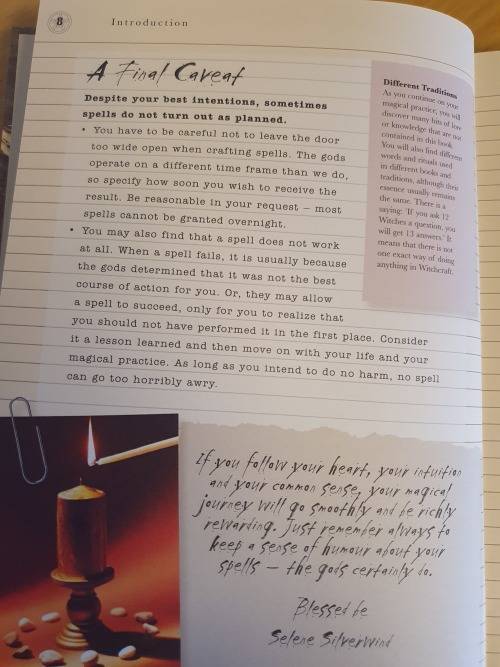 8
Introduction
A Final Caveat
Despite your best intentions, sometimes
spells do not turn out as planned.
• You have to be careful not to leave the door
too wide open when crafting spells. The gods
operate on a different time frame than we do,
so specify how soon you wish to receive the
result. Be reasonable in your request – most
spells cannot be granted overnight.
• You may also find that a spell does not work
at all. When a spell fails, it is usually because
the gods determined that it was not the best
course of action for you. Or, they may allow
a spell to succeed, only for you to realize that
you should not have performed it in the first place. Consider
it a lesson learned and then move on with your life and your
magical practice. As long as you intend to do no harm, no spell
can go too horribly awry.
Different Traditions
As you continue on your
magical practice, you will
discover many bits of lore
or knowledge that are not
contained in this book.
You will also find different
words and rituals used
in different books and
traditions, although their
essence usually remains
the same. There is a
saying: 'If you ask 12
Witches a question, you
will get 13 answers.' It
means that there is not
one exact way of doing
anything in Witchcraft.
If you follow your heart, your intuition
and your common sense, your magical
journey will go smoothly and be richly
rewarding. Just remember always to
keep a sense of humour about your
spells – the gods certainly do.
Blessed be
Selene Silverwind